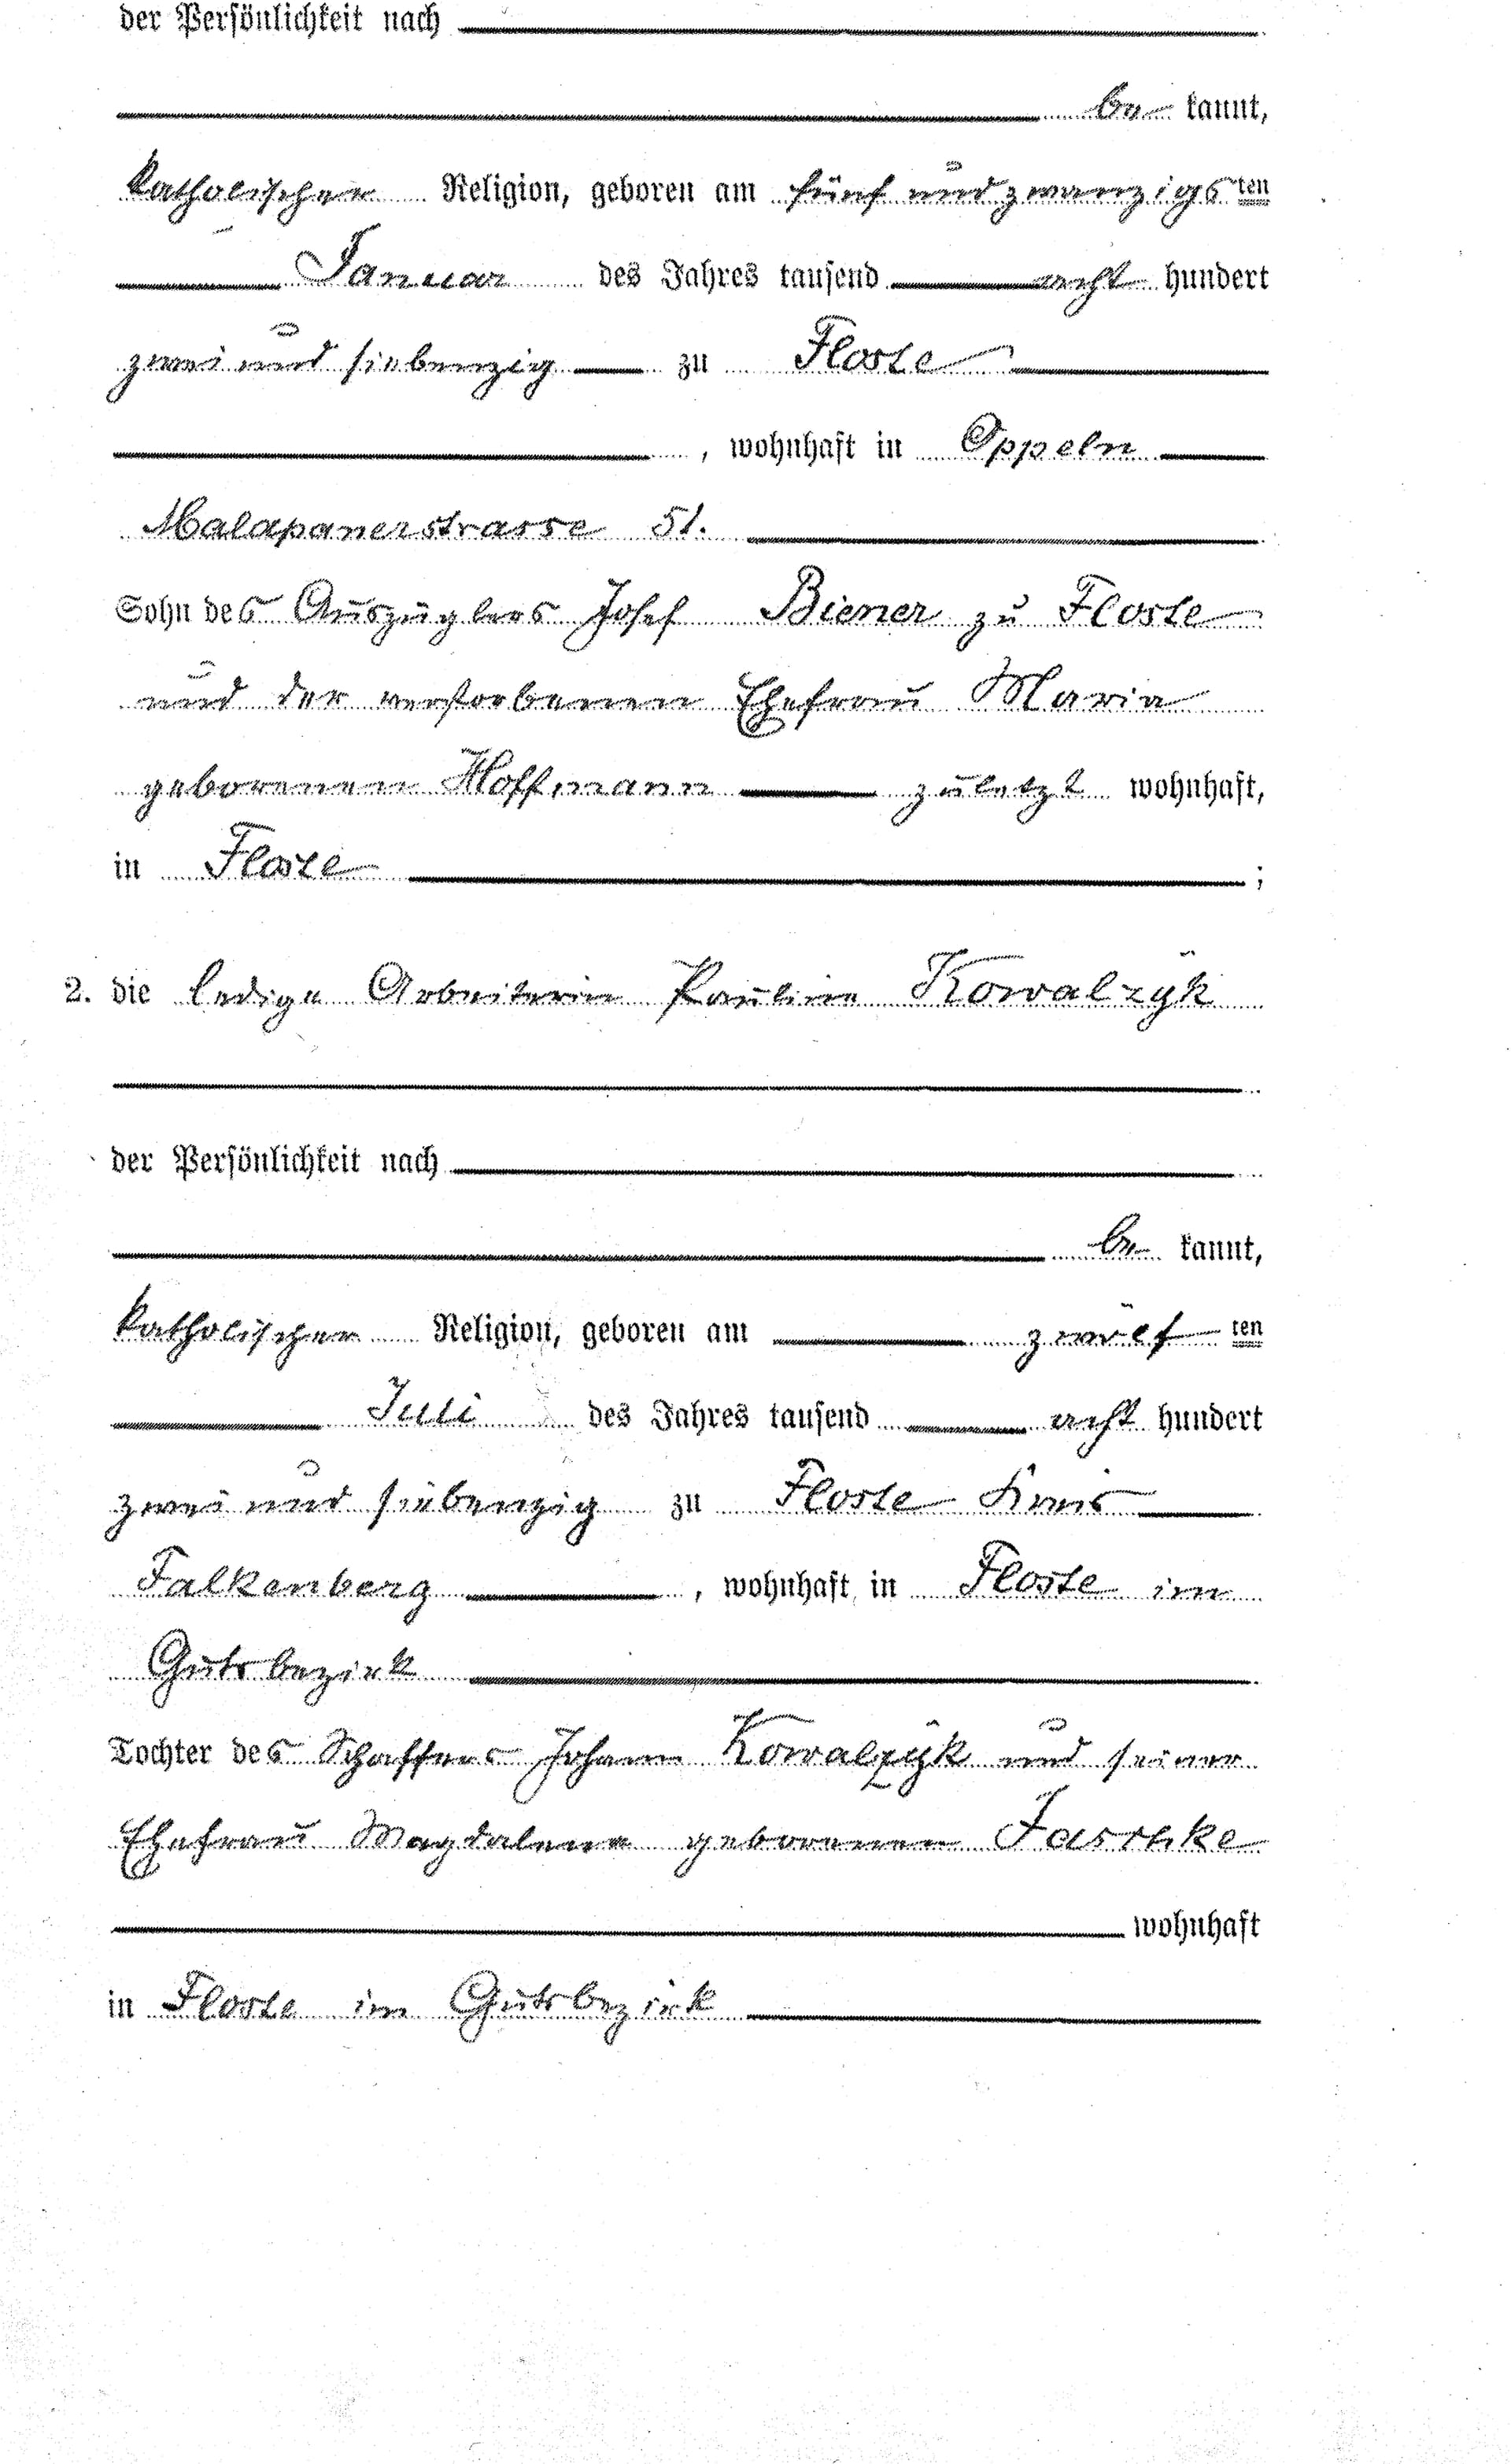 der Persönlichkeit nach
be kannt,
katholischer Religion, geboren am fünf und zwanzigs ten
Januar des Jahres tausend acht hundert
zwei und siebenzig zu Floste
, wohnhaft in Oppeln
Malapanerstrasse 51.
Sohn des Auszüglers Josef Biener zu Floste
und der verstorbenen Ehefrau Maria
geborenen Hoffmann zuletzt wohnhaft,
in Floste ;
2. die ledige Arbeiterin Pauline Kowalzÿk
der Persönlichkeit nach
be kannt,
katholischer Religion, geboren am zwölf ten
Juli des Jahres tausend acht hundert
zwei und siebenzig zu Floste Kreis
Falkenberg , wohnhaft in Floste im
Gutsbezirk
Tochter des Schaffers Johann Kowalzÿk und seiner
Ehefrau Magdalena geborenen Jaschke
wohnhaft
in Floste im Gutsbezirk